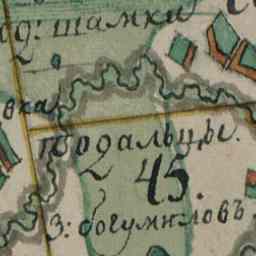 д: шамки
вка
подальцы.
45.
3: богумиловъ